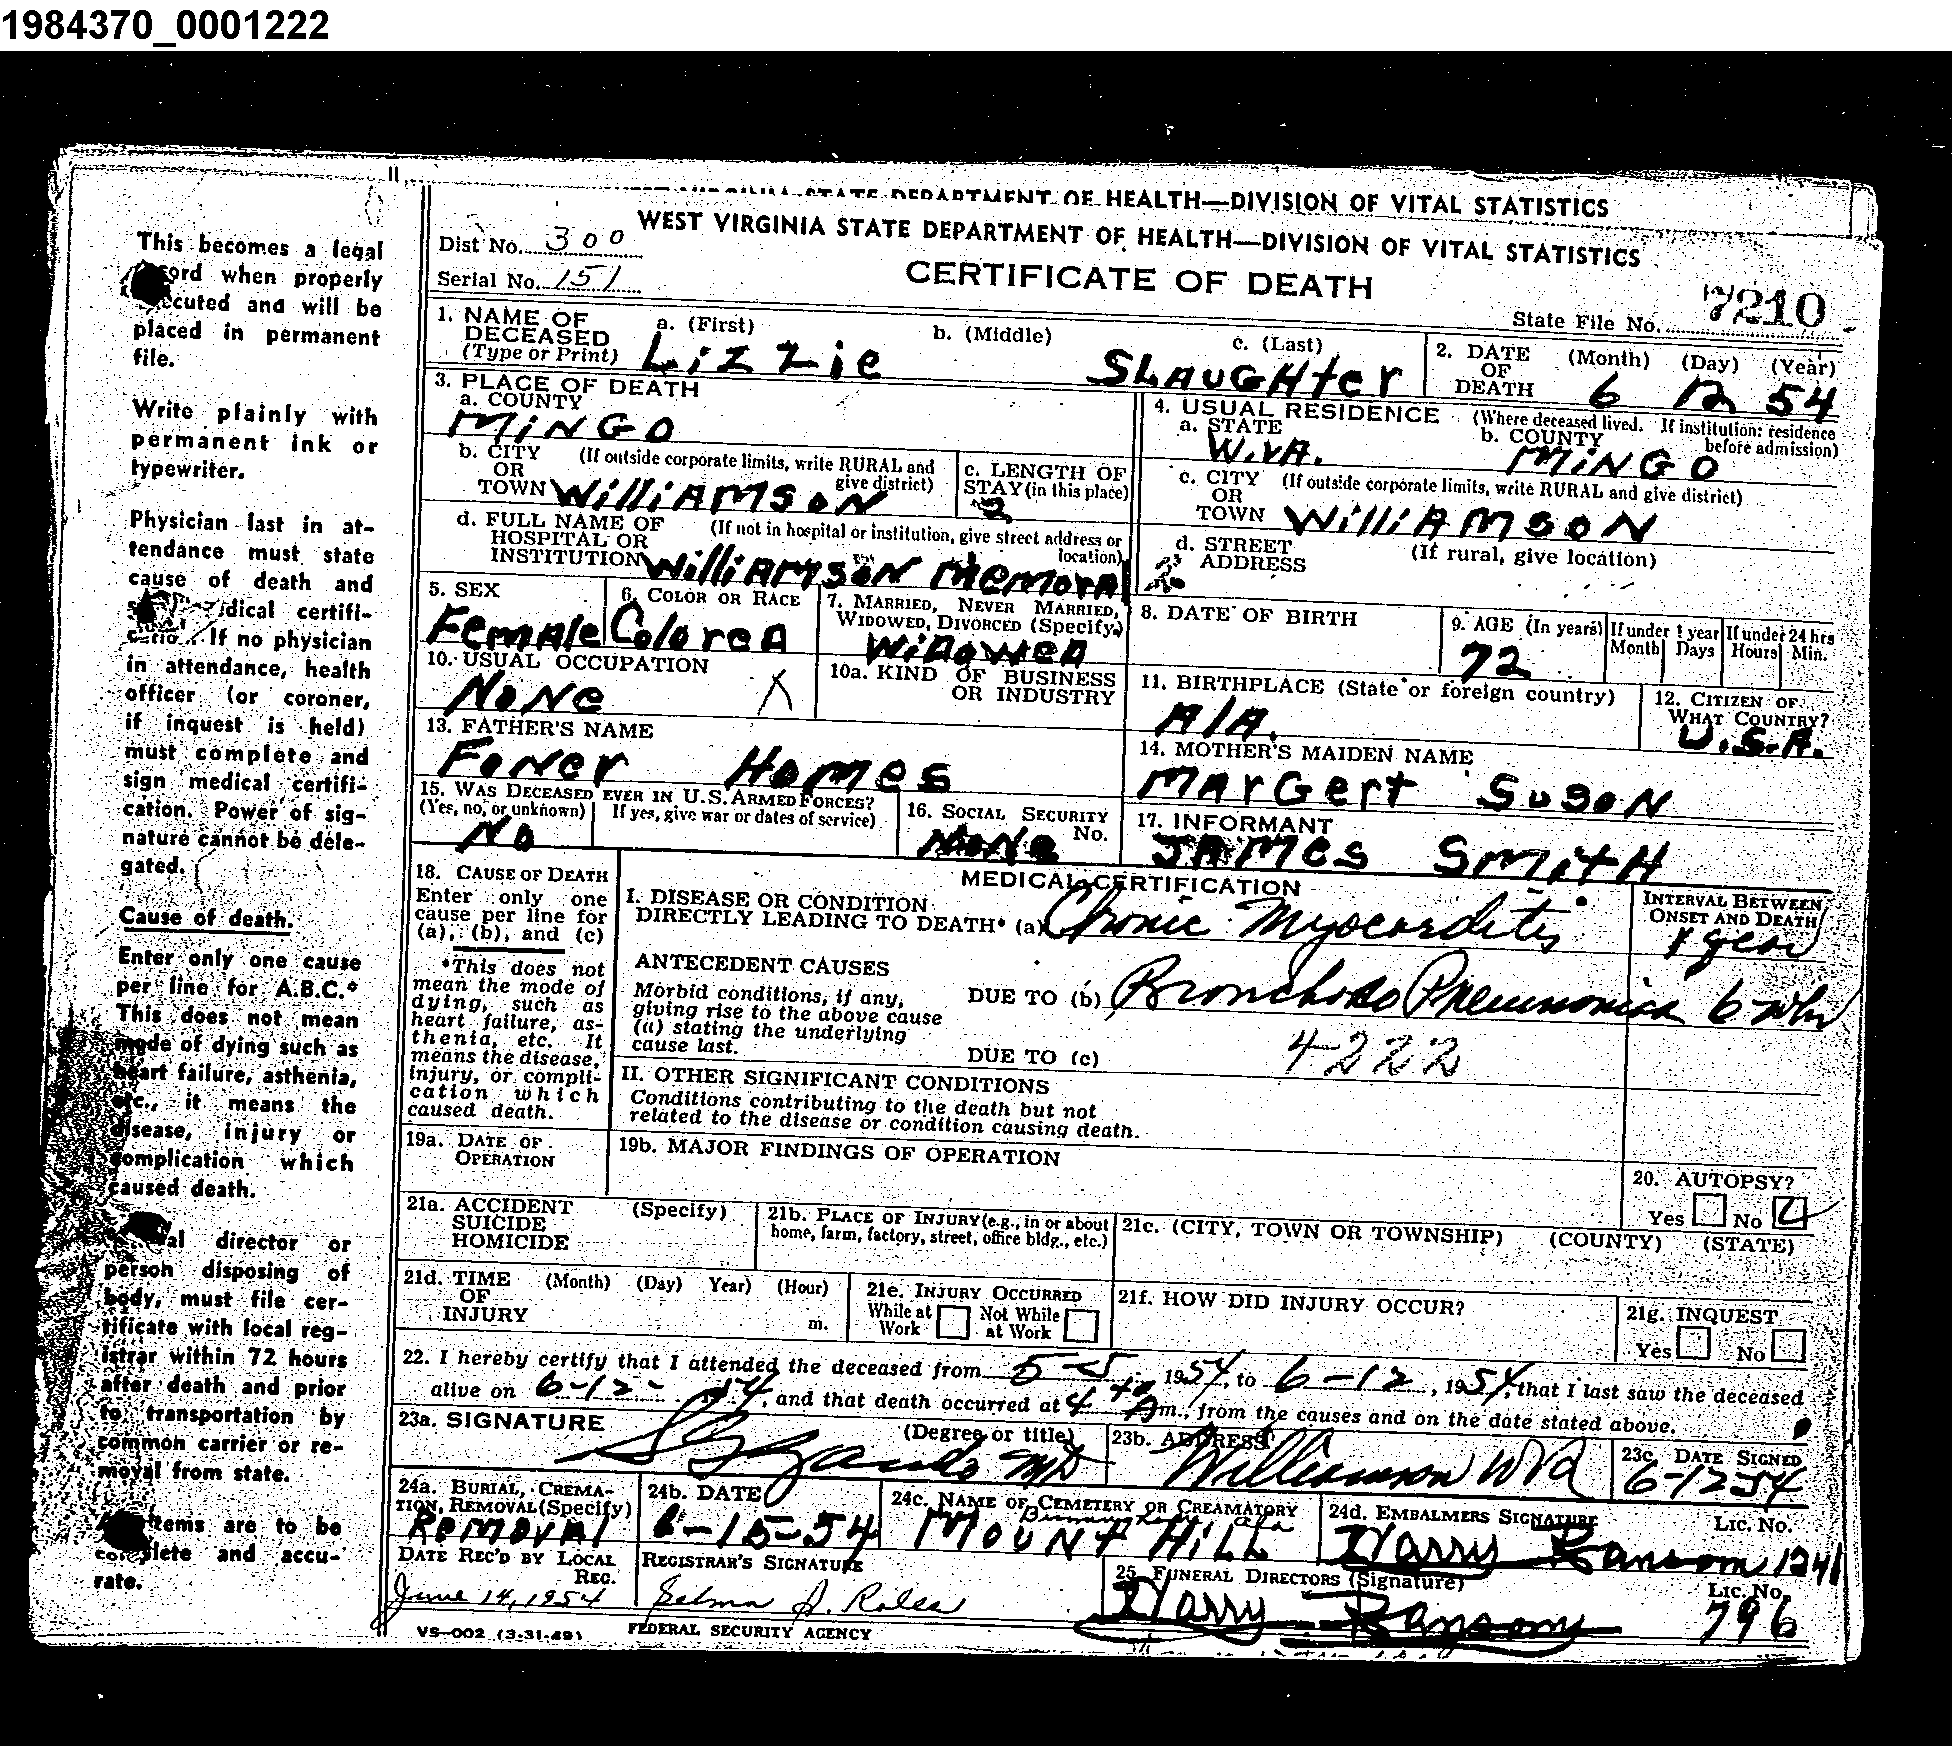 1984370_0001222
WEST VIRGINIA STATE DEPARTMENT OF HEALTH—DIVISION OF VITAL STATISTICS
WEST VIRGINIA STATE DEPARTMENT OF HEALTH—DIVISION OF VITAL STATISTICS
CERTIFICATE OF DEATH
Dist No. 300
Serial No. 151
State File No. 7210
This becomes a legal
record when properly
executed and will be
placed in permanent
file.
Write plainly with
permanent ink or
typewriter.
Physician last in at-
tendance must state
cause of death and
sign medical certifi-
cation. If no physician
in attendance, health
officer (or coroner,
if inquest is held)
must complete and
sign medical certifi-
cation. Power of sig-
nature cannot be dele-
gated.
Cause of death.
Enter only one cause
per line for A.B.C.*
This does not mean
mode of dying such as
heart failure, asthenia,
etc., it means the
disease, injury or
complication which
caused death.
director or
person disposing of
body, must file cer-
tificate with local reg-
istrar within 72 hours
after death and prior
to transportation by
common carrier or re-
moval from state.
items are to be
complete and accu-
rate.
1. NAME OF DECEASED (Type or Print) a. (First) Lizzie b. (Middle) c. (Last) SLAUGHter
2. DATE OF DEATH (Month) (Day) (Year) 6 12 54
3. PLACE OF DEATH
a. COUNTY MiNGO
4. USUAL RESIDENCE (Where deceased lived. If institution: residence before admission)
a. STATE W.VA. b. COUNTY MiNGO
b. CITY OR TOWN (If outside corporate limits, write RURAL and give district) WilliAMSON
c. LENGTH OF STAY (in this place)
c. CITY OR TOWN (If outside corporate limits, write RURAL and give district) WilliAMSON
d. FULL NAME OF HOSPITAL OR INSTITUTION (If not in hospital or institution, give street address or location) WilliAMSON MeMorAl
d. STREET ADDRESS (If rural, give location)
5. SEX FeMAle
6. COLOR OR RACE Colored
7. MARRIED, NEVER MARRIED, WIDOWED, DIVORCED (Specify) Widowed
8. DATE OF BIRTH
9. AGE (In years) 72
If under 1 year Month Days
If under 24 hrs Hours Min.
10. USUAL OCCUPATION NoNe X
10a. KIND OF BUSINESS OR INDUSTRY
11. BIRTHPLACE (State or foreign country) AlA.
12. CITIZEN OF WHAT COUNTRY? U.S.A.
13. FATHER'S NAME FoNer HoMes
14. MOTHER'S MAIDEN NAME MArGert SusoN
15. WAS DECEASED EVER IN U.S. ARMED FORCES?
(Yes, no, or unknown) No
If yes, give war or dates of service)
16. SOCIAL SECURITY No. NoNe
17. INFORMANT JAMes SMitH
18. CAUSE OF DEATH
Enter only one
cause per line for
(a), (b), and (c)
*This does not
mean the mode of
dying, such as
heart failure, as-
thenia, etc. It
means the disease,
injury, or compli-
cation which
caused death.
MEDICAL CERTIFICATION
INTERVAL BETWEEN ONSET AND DEATH
I. DISEASE OR CONDITION
DIRECTLY LEADING TO DEATH* (a) Chronic Myocarditis 1 year
ANTECEDENT CAUSES
Morbid conditions, if any,
giving rise to the above cause
(a) stating the underlying
cause last.
DUE TO (b) Pneumonia 6
DUE TO (c) 4222
II. OTHER SIGNIFICANT CONDITIONS
Conditions contributing to the death but not
related to the disease or condition causing death.
19a. DATE OF OPERATION
19b. MAJOR FINDINGS OF OPERATION
20. AUTOPSY?
Yes No
21a. ACCIDENT SUICIDE HOMICIDE (Specify)
21b. PLACE OF INJURY (e.g., in or about home, farm, factory, street, office bldg., etc.)
21c. (CITY, TOWN OR TOWNSHIP) (COUNTY) (STATE)
21d. TIME OF INJURY (Month) (Day) Year) (Hour) m.
21e. INJURY OCCURRED
While at Work Not While at Work
21f. HOW DID INJURY OCCUR?
21g. INQUEST
Yes No
22. I hereby certify that I attended the deceased from 5-5, 1954, to 6-12, 1954, that I last saw the deceased
alive on 6-12- 54, and that death occurred at 4 40 A m., from the causes and on the date stated above.
23a. SIGNATURE (Degree or title) MD
23b. ADDRESS Williamson WVa
23c. DATE SIGNED 6-12-54
24a. BURIAL, CREMATION, REMOVAL (Specify) ReMovAl
24b. DATE 6-15-54
24c. NAME OF CEMETERY OR CREAMATORY MOUNT HiLL
24d. EMBALMERS SIGNATURE Lic. No. Harry Ransom 1241
DATE REC'D BY LOCAL REG. June 14, 1954
REGISTRAR'S SIGNATURE Selma
25. FUNERAL DIRECTORS (Signature) Harry Ransom Lic. No. 796
VS-002 (3-31-49) FEDERAL SECURITY AGENCY